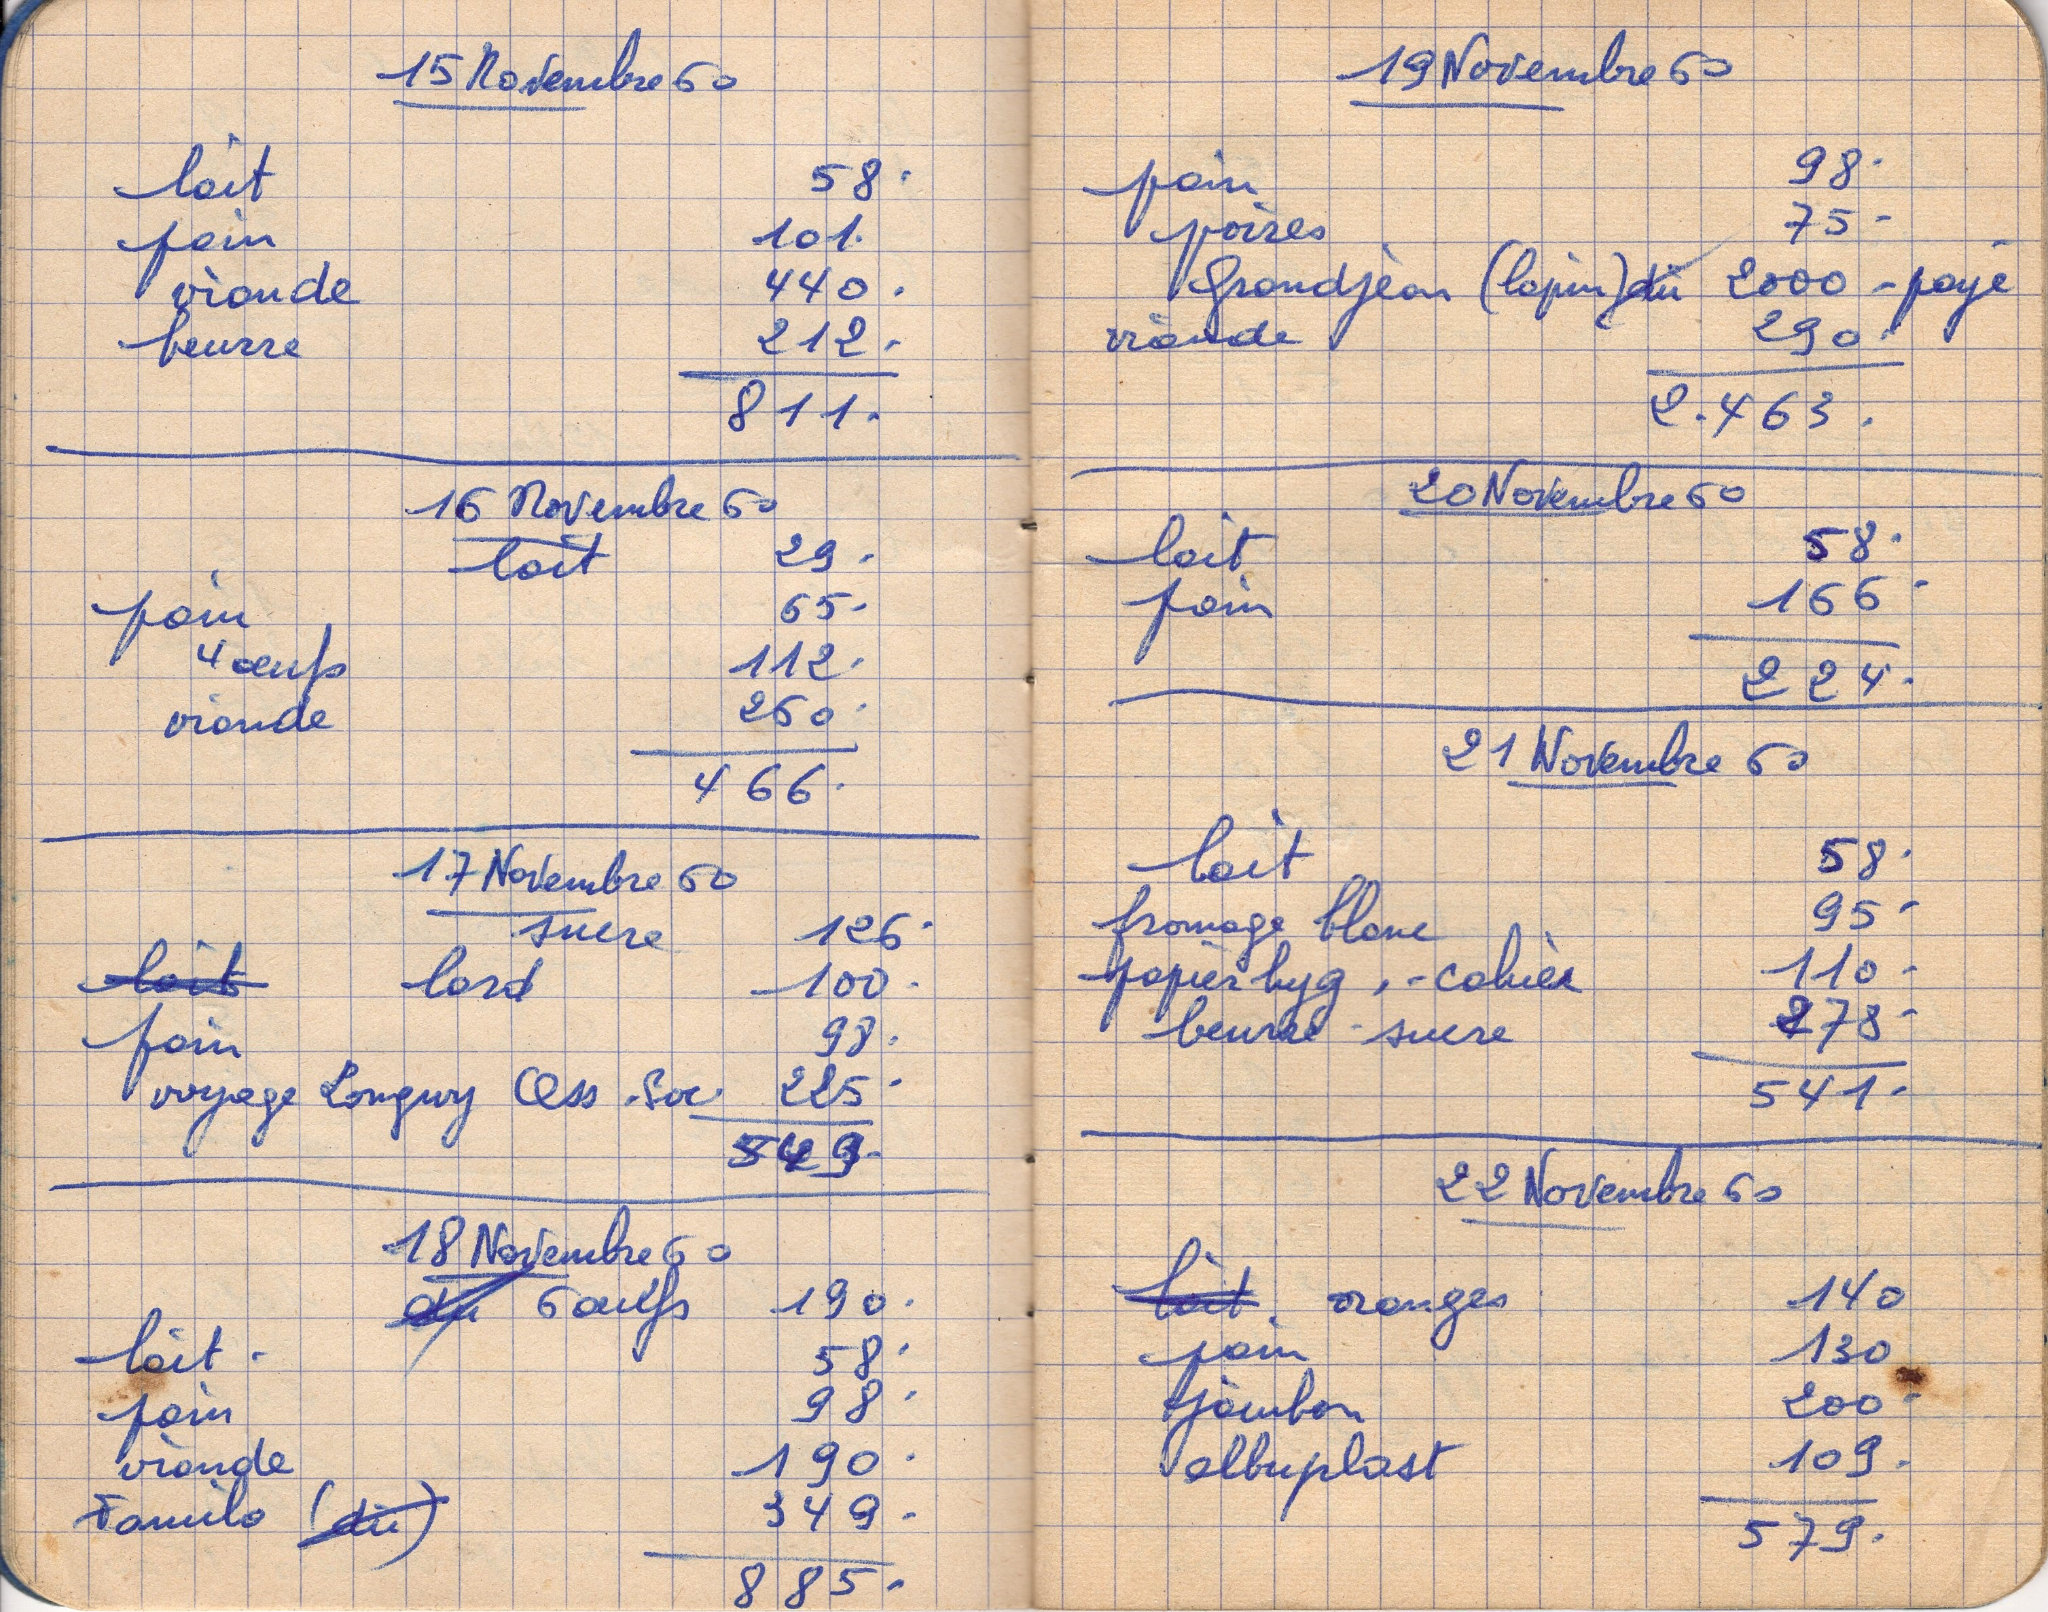 15 Novembre 60
lait 58.
pain 101.
viande 440.
beurre 212.
811.
16 Novembre 60
lait 29.
pain 65.
4 œufs 112.
viande 260.
466.
17 Novembre 60
sucre 126.
lait lard 100.
pain 98.
voyage Longwy Ass. Soc. 225.
549.
18 Novembre 60
du 6 œufs 190.
lait. 58.
pain 98.
viande 190.
Familo (dû) 349.
885.
19 Novembre 60
pain 98.
poires 75-
Grandjean (lapin) dû 2000 - payé
viande 290.
2.463.
20 Novembre 60
lait 58.
pain 166-
224.
21 Novembre 60
lait 58.
fromage blanc 95-
papier hyg, - cahier 110-
beurre - sucre 278-
541.
22 Novembre 60
lait oranges 140
pain 130
jambon 200-
albuplast 109.
579.